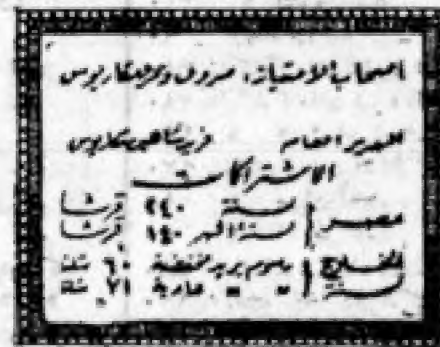 أصحاب الامتياز: صروف ومكاريوس
المدير العام فريد شاهين مكاريوس
الاشتراكات
مصر لسنة ٢٤٠ قرشا
لستة اشهر ١٤٠ قرشا
الخارج برسوم بريد مخفضة ٦٠ شلنا
لسنة " " عادية ٧١ شلنا